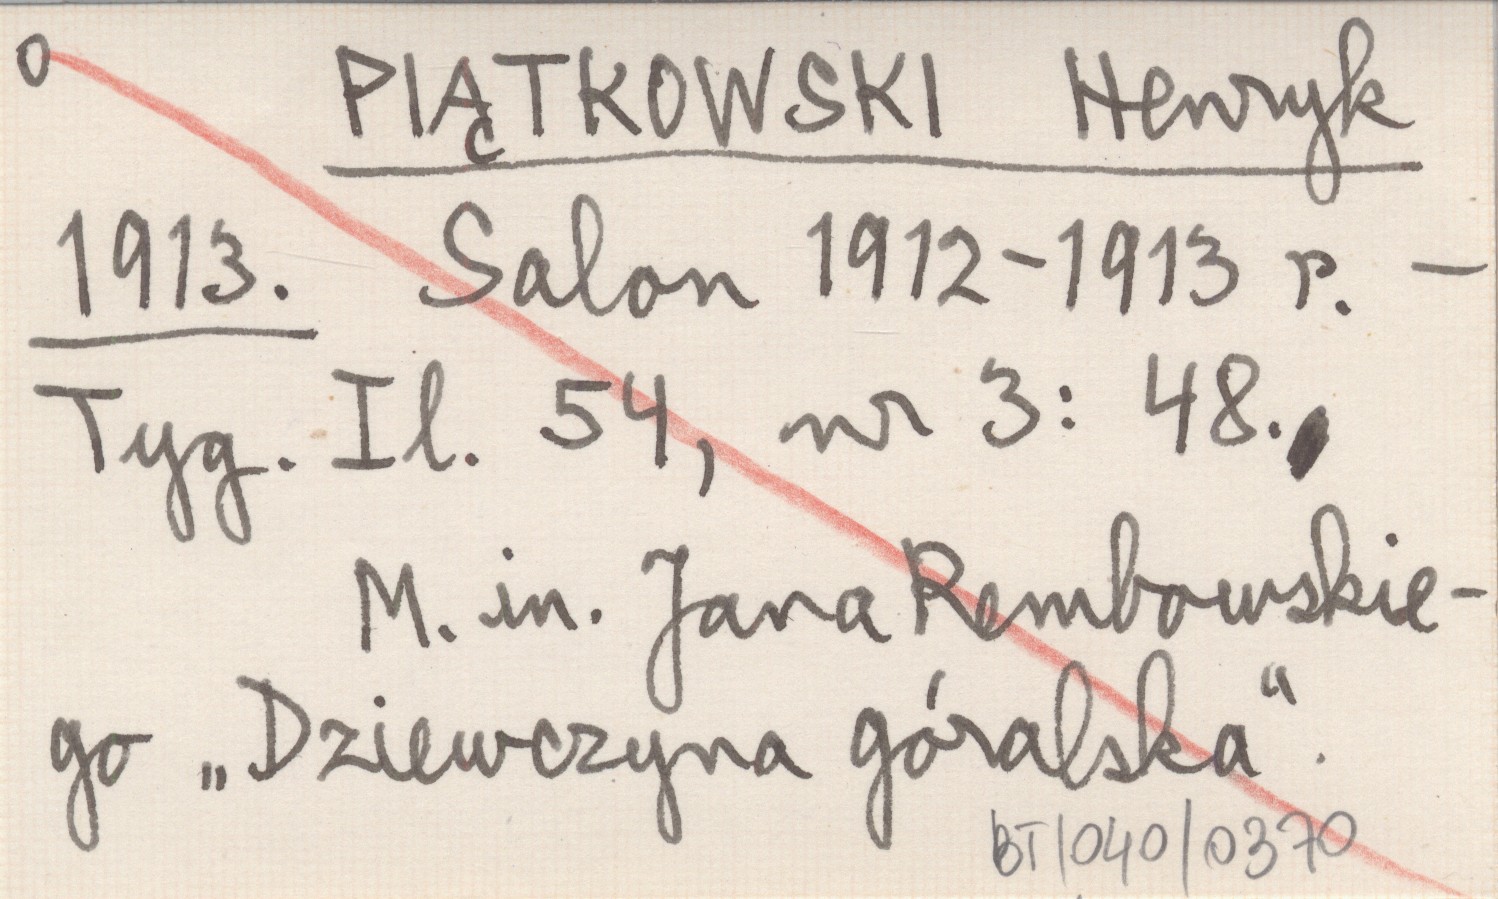 O PIĄTKOWSKI Henryk
1913. Salon 1912-1913 r. —
Tyg. Il. 54, nr 3: 48.
M. in. Jana Rembowskie-
go „Dziewczyna góralska“.
BT/040/0370